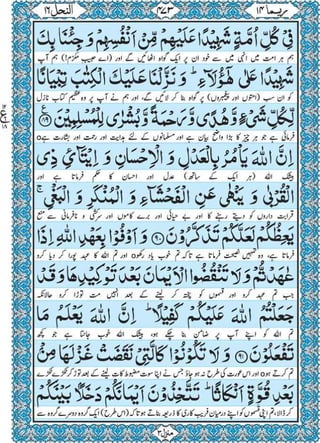 ربما ١٤
٢٧٣
النحل ١٦
فِیْ كُلِّ اُمَّةٍ شَهِیْدًا عَلَیْهِمْ مِّنْ اَنْفُسِهِمْ وَ جِئْنَا بِكَ
ہم ہر امت میں انہی میں سے خود ان پر ایک گواہ اٹھائیں گے اور (اے حبیبِ مکرّم!) ہم آپ
شَهِیْدًا عَلٰى هٰۤؤُلَآءِ ؕ وَ نَزَّلْنَا عَلَیْكَ الْكِتٰبَ تِبْیَانًا
کو ان سب (امتوں اور پیغمبروں) پر گواہ بنا کر لائیں گے، اور ہم نے آپ پر وہ عظیم کتاب نازل
لِّكُلِّ شَیْءٍ وَّ هُدًى وَّ رَحْمَةً وَّ بُشْرٰى لِلْمُسْلِمِیْنَ ﴿۸۹﴾
فرمائی ہے جو ہر چیز کا بڑا واضح بیان ہے اور مسلمانوں کے لئے ہدایت اور رحمت اور بشارت ہے o
اِنَّ اللّٰهَ یَاْمُرُ بِالْعَدْلِ وَ الْاِحْسَانِ وَ اِیْتَآئِ ذِی
بیشک اللہ (ہر ایک کے ساتھ) عدل اور احسان کا حکم فرماتا ہے اور
الْقُرْبٰى وَ یَنْهٰى عَنِ الْفَحْشَآءِ وَ الْمُنْكَرِ وَ الْبَغْیِ ۚ
قرابت داروں کو دیتے رہنے کا اور بے حیائی اور برے کاموں اور سرکشی و نافرمانی سے منع
یَعِظُكُمْ لَعَلَّكُمْ تَذَكَّرُوْنَ ﴿۹۰﴾ وَ اَوْفُوْا بِعَهْدِ اللّٰهِ اِذَا
فرماتا ہے، وہ تمہیں نصیحت فرماتا ہے تاکہ تم خوب یاد رکھو o اور تم اللہ کا عہد پورا کر دیا کرو
عٰهَدْتُّمْ وَ لَا تَنْقُضُوا الْاَیْمَانَ بَعْدَ تَوْكِیْدِهَا وَ قَدْ
جب تم عہد کرو اور قسموں کو پختہ کر لینے کے بعد انہیں مت توڑا کرو حالانکہ
جَعَلْتُمُ اللّٰهَ عَلَیْكُمْ كَفِیْلًا ؕ اِنَّ اللّٰهَ یَعْلَمُ مَا
تم اللہ کو اپنے آپ پر ضامن بنا چکے ہو، بیشک اللہ خوب جانتا ہے جو کچھ
تَفْعَلُوْنَ ﴿۹۱﴾ وَ لَا تَكُوْنُوْا كَالَّتِیْ نَقَضَتْ غَزْلَهَا مِنْۢ
تم کرتے ہو o اور اس عورت کی طرح نہ ہو جاؤ جس نے اپنا سوت مضبوط کات لینے کے بعد توڑ کر ٹکڑے ٹکڑے
بَعْدِ قُوَّةٍ اَنْكَاثًا ؕ تَتَّخِذُوْنَ اَیْمَانَكُمْ دَخَلًۢا بَیْنَكُمْ
کر ڈالا، تم اپنی قسموں کو اپنے درمیان فریب کاری کا ذریعہ بناتے ہو تاکہ (اس طرح) ایک گروہ دوسرے گروہ سے
منزل ٣